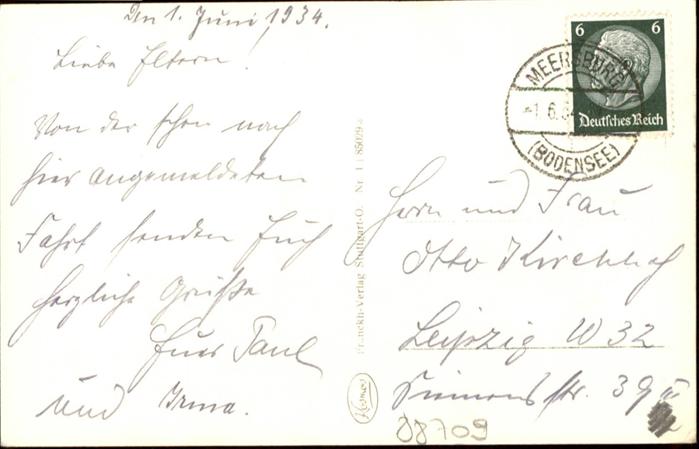 Den 1. Juni 1934.
Liebe Eltern!
Von der schon nach
hier angemeldeten
Fahrt senden Euch
herzliche Grüße
Euer Paul
und Irma.
Franckh-Verlag Stuttgart-O. Nr. 1185029
Kosmos
6 6
Deutsches Reich
MEERSBURG
-1.6.3
(BODENSEE)
Herrn und Frau
Otto Kirchhof
Leipzig W 32
Siemensstr. 39
88709